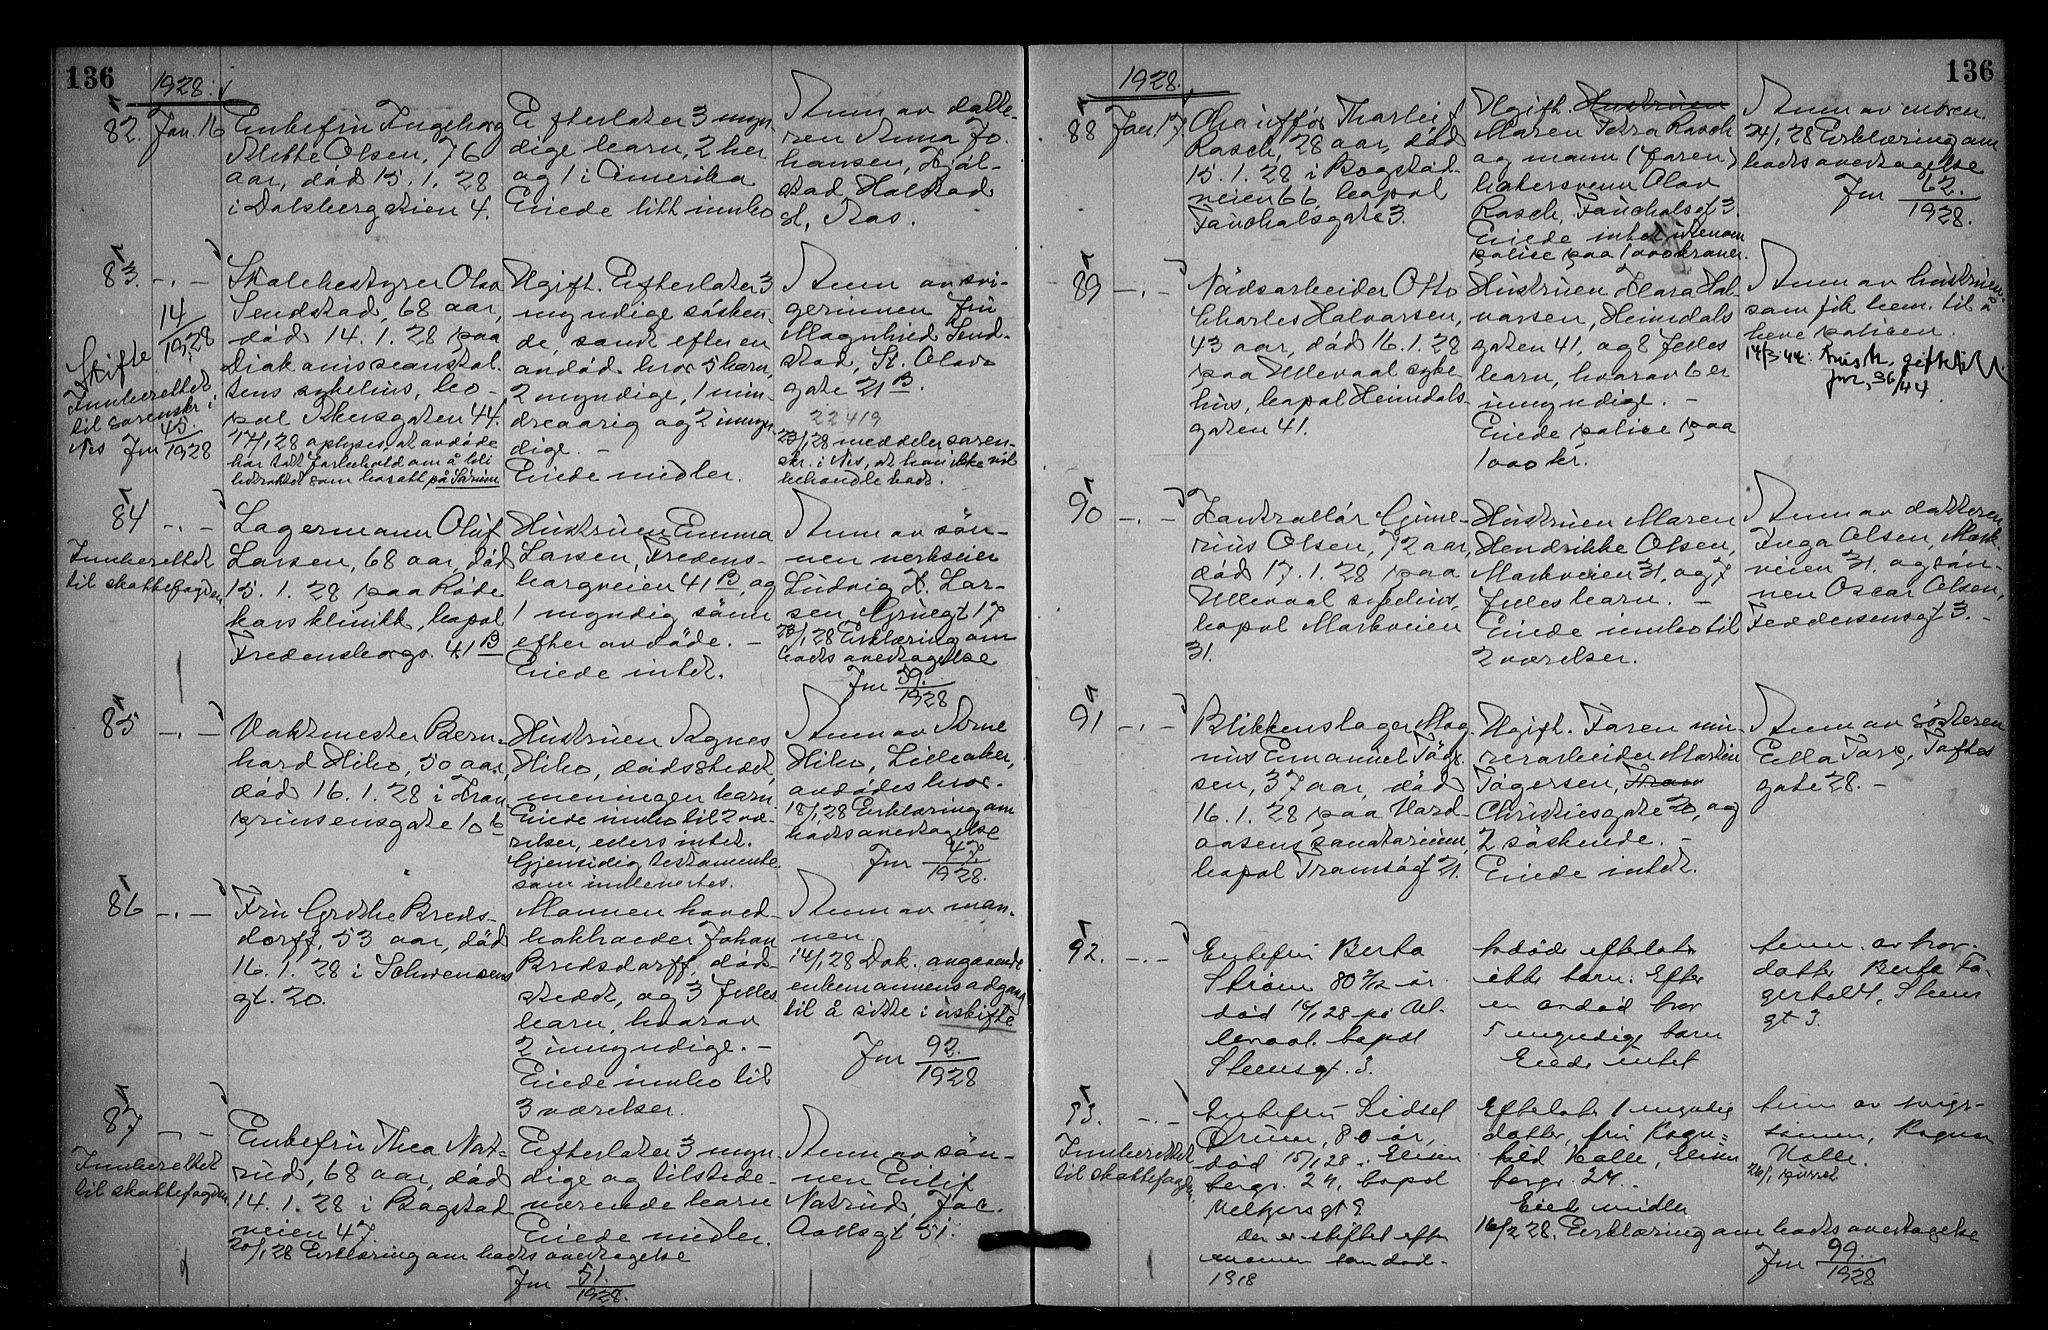 136
1928.
82. Jan. 16
Enkefru Ingeborg
Mette Olsen, 76
aar, død 15.1.28
i Dalsbergstien 4.
Efterlater 3 myn-
dige barn, 2 her
og 1 i Amerika
Eiede litt innbo
Anm av datte-
ren Anna Jo-
hansen,
stad
st, Aas.
83. -.-
14
1928
Skifte
Innberettet
til sorenskr. i
Nes Jnr 45
1928
Skolebestyrer Olav
Sendstad, 68 aar,
død 14.1.28 paa
Diakonisseanstal-
tens sykehus, bo-
pal Akersgaten 44.
17/1 28 oplyses, at avdøde
har tatt forbehold om å bli
betraktet som bosatt på Sørum
Ugift. Efterlater 3
myndige søsken-
de, samt efter en
avdød bror 5 barn,
2 myndige, 1 min-
dreaarig og 2 umyn-
dige. -
Eiede midler.
Anm av svi-
gerinnen Fru
Magnhild Send-
stad, St. Olavs
gate 21 B.
22419
23/1 28 meddeler soren-
skr. i Nes, at han ikke vil
behandle boet.
84 -.-
Innberettet
til skattefogden
Lagermann Oluf
Larsen, 68 aar, død
15.1.28 paa Røde
kors klinikk, bopal
Fredensborgv. 41 B
Hustruen Emma
Larsen, Fredens-
borgveien 41 B, og
1 myndig sønn
efter avdøde. -
Eiede intet.
Anm av søn-
nen verkseier
Ludvig H. Lar-
sen Gruegt 17
23/1 28 Erklæring om
boets overtagelse
Jnr 59.
1928
85 -.-
Vaktmester Bern-
hard Hiho, 50 aar,
død 16.1.28 i Kron
prinsensgate 10 b
Hustruen Agnes
Hiho, dødsstedet,
men ingen barn.
Eiede innbo til 2 væ-
relser, ellers intet.
Gjensidig testamente
som innlevertes.
Anm av Arne
Hiho, Lilleaker,
avdødes bror.
18/1 28 Erklæring om
boets overtagelse
Jnr 47.
1928.
86 -.-
Fru Grethe Breds-
dorff, 53 aar, død
16.1.28 i Schwensens
gt. 20.
Mannen hoved-
bokholder Johan
Bredsdorff, død-
stedet, og 3 felles
barn, hvorav
2 umyndige. -
Eiede innbo til
3 værelser.
Anm av man-
nen
14/1 28 Dok. angaaende
enkemannens adgang
til å sitte i uskifte
Jnr 92.
1928
87 -.-
Innberettet
til skattefogden
Enkefru Thea Nat-
rud, 68 aar, død
14.1.28 i Bogstad
veien 47.
20/1 28 Erklæring om boets overtagelse
Jnr 51.
1928.
Efterlater 3 myn-
dige og tilstede-
værende barn
Eiede midler.
Anm av søn-
nen Eilif
Natrud, Jac.
Aallsgt 51.
136
1928.
88 Jan 17.
Chauffør Thorleif
Rasch, 28 aar, død
15.1.28 i Bogstad-
veien 66, bopal
Fauchalsgate 3.
Ugift. Hustruen
Maren Petra Rasch
og mann (foren)
bakersvenn Olav
Rasch, Fauchalsgt 3.
Eiede intet utenom
polise paa 1000 kroner.
Anm av moren.
24/1 28 Erklæring om
boets overtagelse
Jnr 62.
1928.
89 -.-
Nødsarbeider Otto
Charles Halvorsen,
43 aar, død 16.1.28
paa Ullevaal syke
hus, bopal Heimdals-
gaten 41.
Hustruen Klara Hal-
vorsen, Heimdals
gaten 41, og 8 felles
barn, hvorav 6 er
umyndige. -
Eiede polise paa
1000 kr.
Anm av hustruen
som fik bem. til å
heve polisen.
14/3-44: skifteatt.
Jnr. 36/44
90 -.-
Kontrollør Gune-
rius Olsen, 72 aar,
død 17.1.28 paa
Ullevaal sykehus,
bopal Markveien
31.
Hustruen Maren
Hendrikke Olsen,
Markveien 31, og 7
felles barn. -
Eiede innbo til
2 værelser.
Anm av datteren
Inga Olsen, Mark-
veien 31. og søn-
nen Oscar Olsen,
Feddersensgt 3. -
91 -.-
Blikkenslager Mag
nus Emanuel Tøger-
sen, 37 aar, død
16.1.28 paa Vard-
aasens sanatorium,
bopal Tromsøgt 21.
Ugift. Faren mu-
rerarbeider Martin
Tøgersen,
Christiesgate 20, og
2 søskende. -
Eiede intet.
Anm av søsteren
Ella Torp, Toftes
gate 28. -
92. -.-
Enkefru Berta
Strøm 80 1/2 år.
død 16/1 28 på Ul-
levaal. bopal
Steensgt. 3.
Avdøde efterlot
ikke barn. Efter
en avdød bror
5 myndige barn
Eiede intet
Anm. av bror-
datter Berta Fa-
gerholt, Steens
gt 3.
93. -.-
Innberettet
til skattefogden
Enkefru Sidsel
Bruun, 80 år,
død 15/1 28 i Eilers
bergv. 24, bopal
Meltzersgt 9.
Der er skiftet efter
mannen som død.
1918
Efterlater 1 myndig
datter, fru Ragn-
hild Kolle,
bergv. 24. -
Eiede midler
16/2 28. Erklæring om boets overtagelse
Jnr 99.
1928
Anm av sviger-
sønnen, Ragnar
Kolle.
26/1 purret